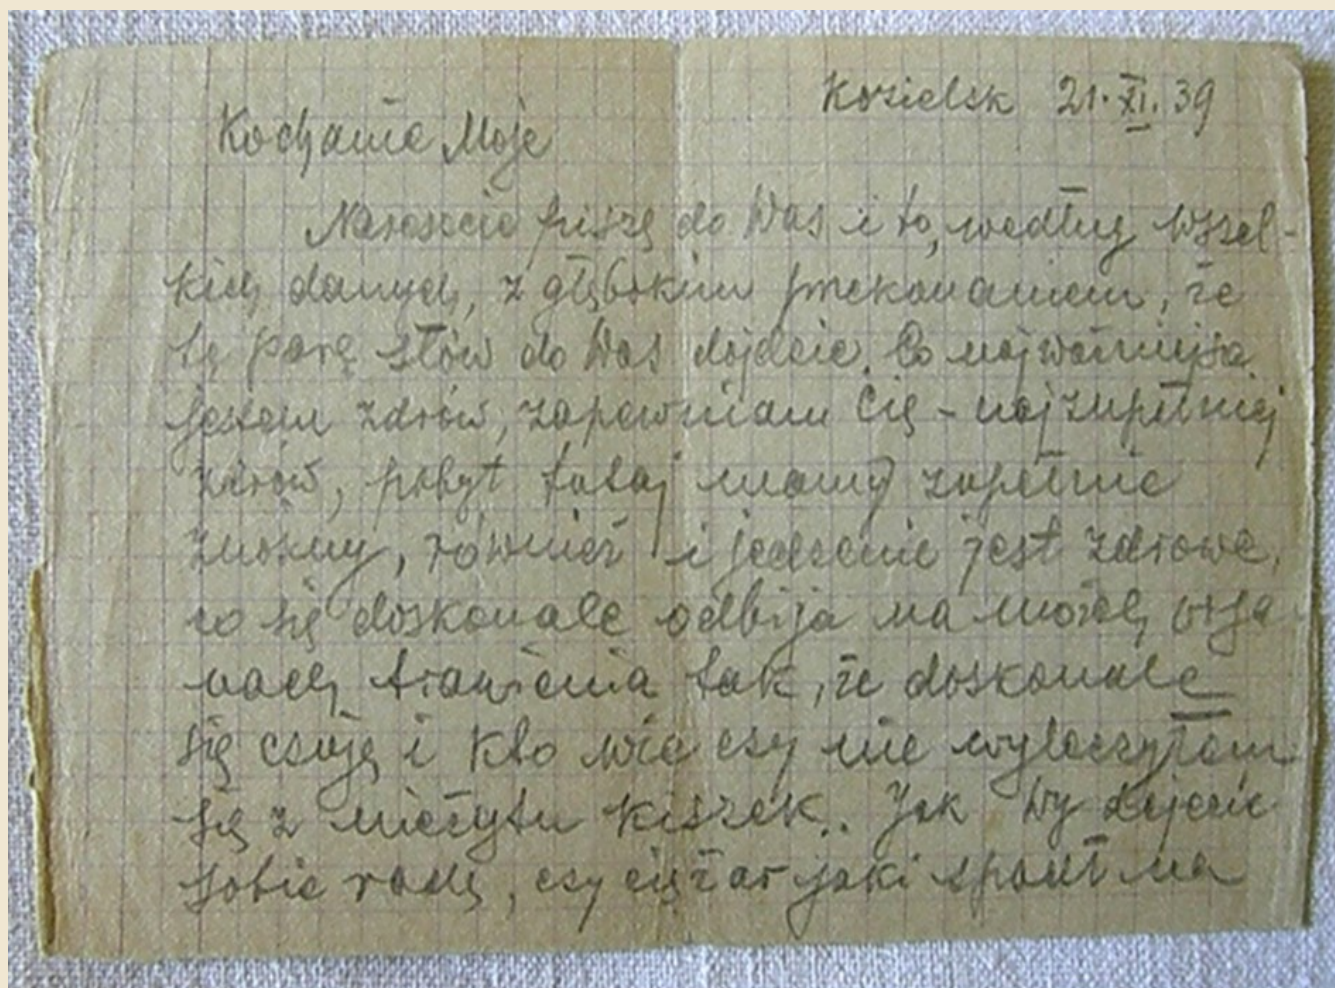 Kozielsk 21.XI.39
Kochanie Moje
Nareszcie piszę do Was i to, według wszel-
kich danych, z głębokim przekonaniem, że
tę parę słów do Was dojdzie. Co najważniejsze
jestem zdrów, zapewniam Cię - najzupełniej
zdrów, pobyt tutaj mamy zupełnie
znośny, również i jedzenie jest zdrowe,
co się doskonale odbija na moich orga-
nach trawienia tak, że doskonale
się czuję i kto wie czy nie wyleczyłem
się z nieżytu kiszek.. Jak Wy dajecie
sobie radę, czy ciężar jaki spadł na